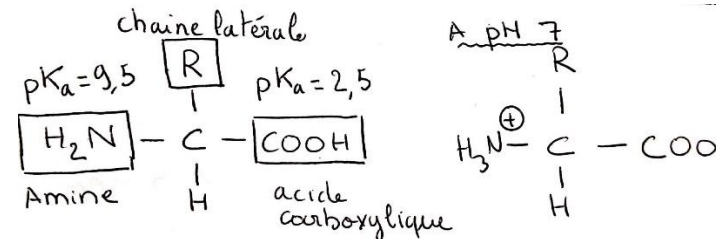 chaine latérale
R
pKa=9,5
pKa=2,5
H2N — C — COOH
H
Amine
acide
carboxylique
A pH 7
R
H3N⊕ — C — COO
H